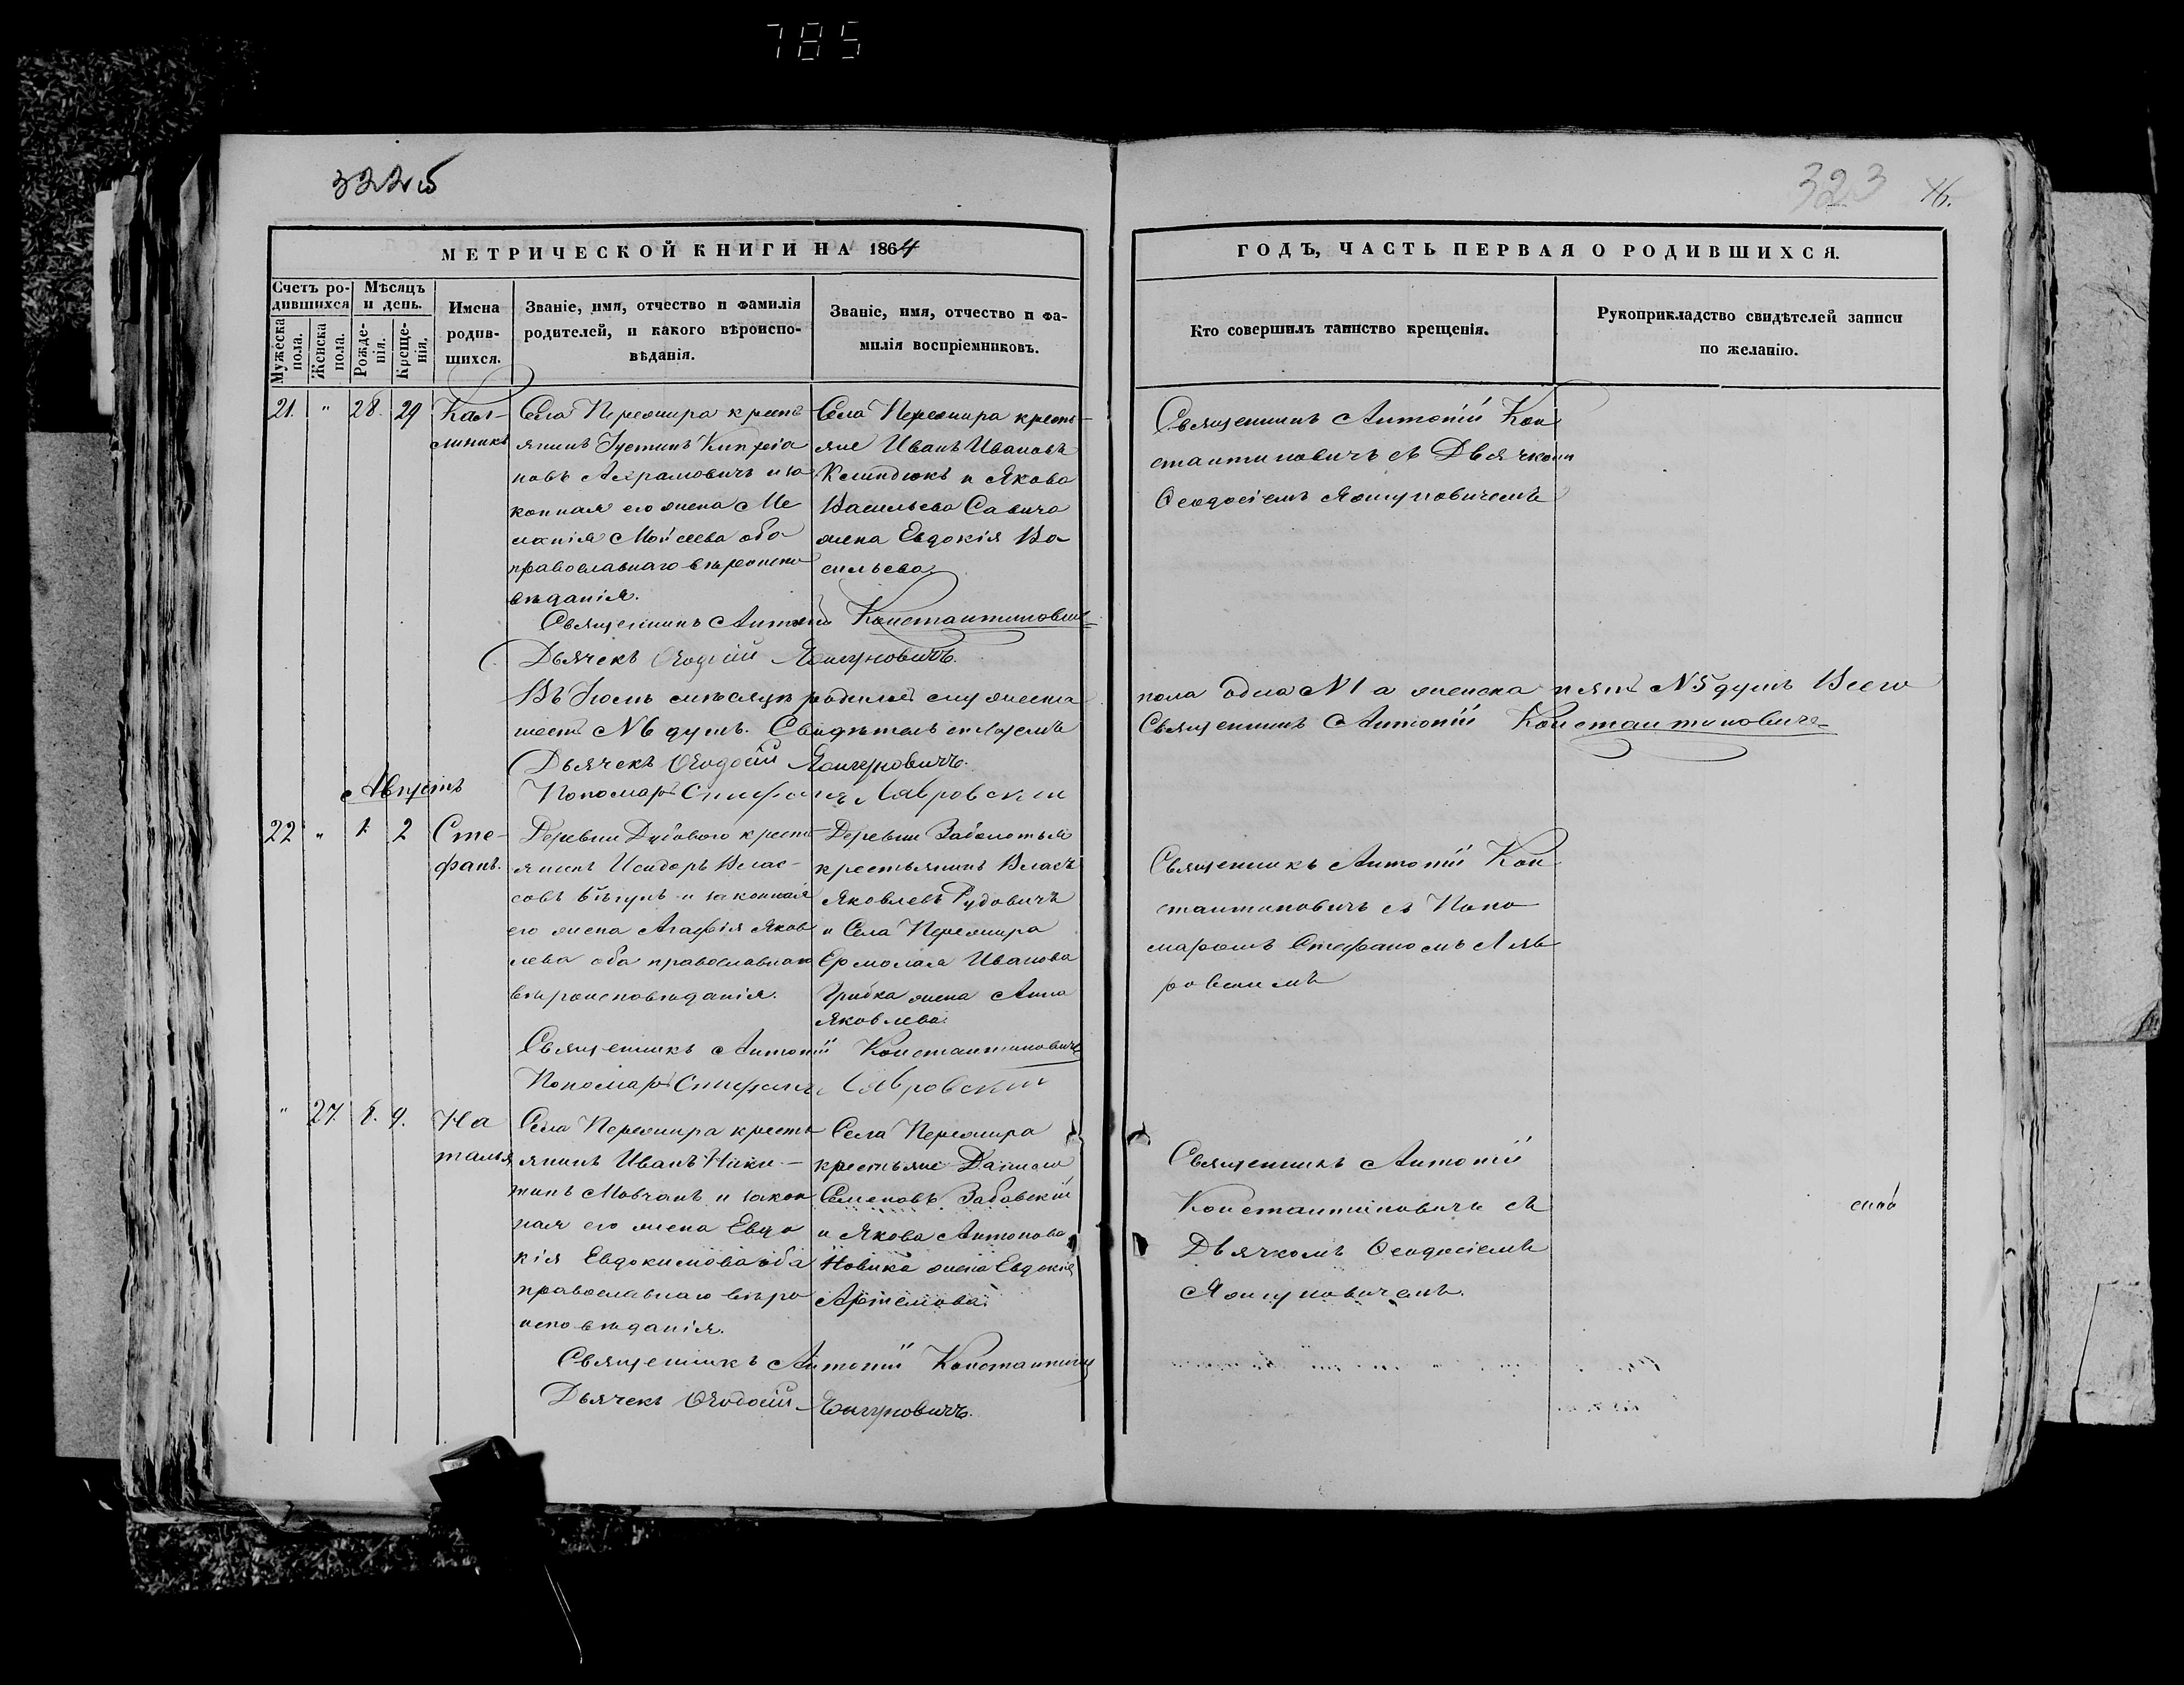 785
322 об
323
76.
МЕТРИЧЕСКОЙ КНИГИ НА 1864
ГОДЪ, ЧАСТЬ ПЕРВАЯ О РОДИВШИХСЯ.
Счетъ родившихся
Мужеска пола.
Женска пола.
Мѣсяцъ и день.
Рожденія.
Крещенія.
Имена родившихся.
Званіе, имя, отчество и фамилія
родителей, и какого вѣроиспо-
вѣданія.
Званіе, имя, отчество и фа-
милія воспріемниковъ.
Кто совершилъ таинство крещенія.
Рукоприкладство свидѣтелей записи
по желанію.
21. " 28. 29 Кал-
линикъ
Села Перемира кресть
янинъ Іустинъ Кипріа
новъ Ахрамовичъ и за
конная его жена Ме
ланія Моисеева оба
православнаго вѣроиспо
вѣданія.
Села Перемира кресть-
яне Иванъ Ивановъ
Климдюкъ и Якова
Васильева Савича
жена Евдокія Ва-
сильева
Священникъ Антоній Кон
стантиновичъ съ Дьячкомъ
Ѳеодосіемъ Яхимовичемъ
Священникъ Антоній Константиновичъ
Дьячекъ Ѳеодосій
Въ Іюль мѣсяцѣ родилось мужеска
пола одна №1 а женска пять №5 душъ Всего
шесть №6 душъ.
Священникъ Антоній Константиновичъ
Дьячекъ Ѳеодосій
Пономарь Стефанъ Лавровскій
Августъ
22 " 1. 2 Сте-
фанъ.
Деревни Дубоваго кресть-
янинъ Исидоръ Влас-
совъ Бѣгунъ и законная
его жена Агафія Яков
лева оба православнаго
вѣроисповѣданія.
Деревни Заболотья
крестьянинъ Власъ
Яковлевъ Рудовичъ
и Села Перемира
Ермолая Иванова
Грибка жена Анна
Яковлева.
Священникъ Антоній Кон-
стантиновичъ съ Поно
маремъ Стефаномъ Лав
ровскимъ
Священникъ Антоній Константиновичъ
Пономарь Стефанъ Лавровскій
" 27. 8. 9. На
талья
Села Перемира кресть-
янинъ Иванъ Ники-
тинъ Мовчанъ и закон
ная его жена Евдо
кія Евдокимова оба
православнаго вѣро
исповѣданія.
Села Перемира
крестьяне Данило
Семеновъ Забавскій
и Якова Антонова
Новика жена Евдокія
Артемова.
Священникъ Антоній
Константиновичъ съ
Дьячкомъ Ѳеодосіемъ
Священникъ Антоній
Дьячекъ Ѳеодосій